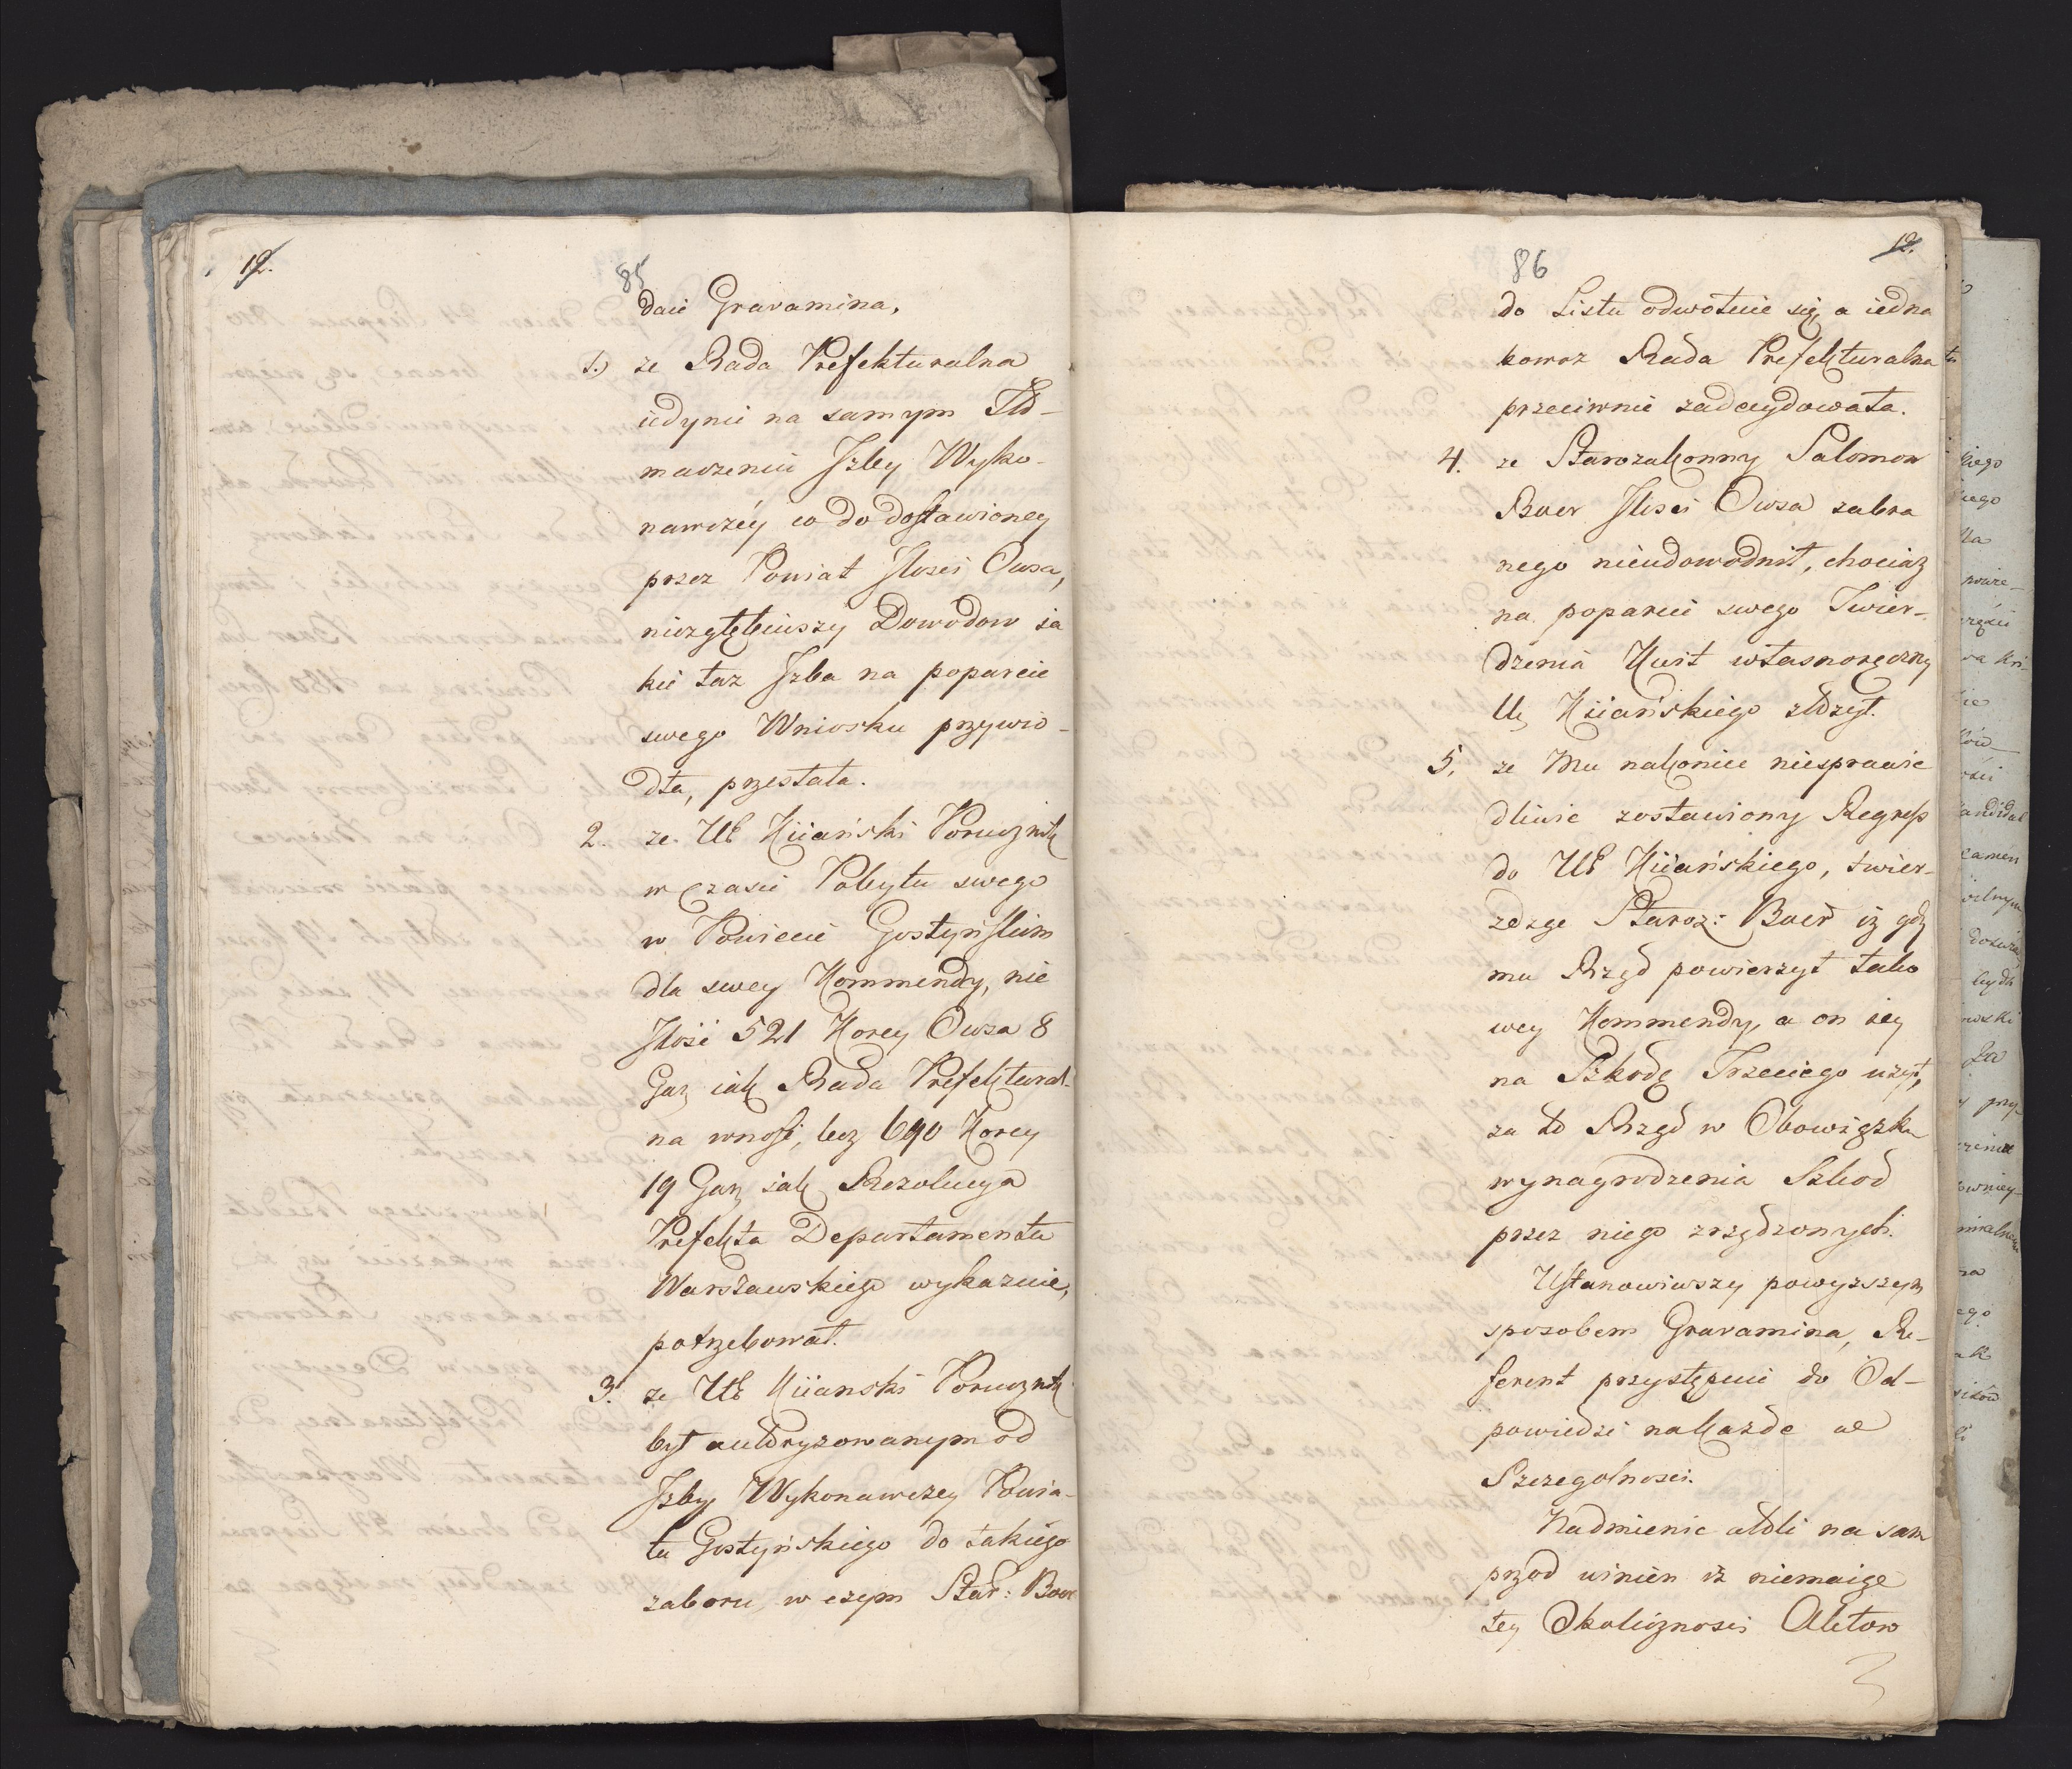 12.
85
daie Gravamina,
1.) ze Rada Prefekturalna
iedynie na samym Tło-
maczeniu Jzby Wyko-
nawczéy co do dostawioney
przez Powiat Jlości Owsa,
niezgłębiwszy Dowodow ia
kie taz Jzba na poparcie
swego Wniosku przywio-
dła, przestała.
2. ze Ur Kiiański Porucznik
w czasie Pobytu swego
w Powiecie Gostyńskim
dla swey Kommendy, nie
Jlość 521 Korcy Owsa 8
Gar, iak Rada Prefektural-
na wnosi, lecz 690 Korcy
19 Gar, iak Rezolucya
Prefekta Departamentu
Warszawskiego wykazuie,
potrzebował.
3. ze Ur Kiianski Porucznik
był autoryzowanym od
Jzby Wykonawczey Powia-
tu Gostyńskiego do takiégo
zaboru, w czym Star: Baer
12.
86
do Listu odwołuie się, a iedna
kowoz Rada Prefekturalna
przeciwnie zadecydowała.
4. ze Starozakonny Salomon
Baer Jlości Owsa zabra
nego nieudowodnił, chociaz
na poparcie swego Twier-
dzenia Kwit własnoręczny
Ur Kiiańskiego złożył.
5. ze Mu nakoniec niesprawie
dliwie zostawiony Regress
do Ur Kiiańskiego, twier-
dząc Staroz: Baer iz gdy
mu Rząd powierzył tako
wey Kommendy, a on iey
na Szkodę Trzeciego uzył,
za to Rząd w Obowiązku
wynagrodzenia Szkod
przez niego zrządzonych.
Ustanowiwszy powyzszym
sposobem Gravamina, Re-
ferent przystępuie do Od-
powiedzi na każde w
Szczegolnosci.
Nadmienic atoli na sam
przod winien iz niemaiąc
tey Okoliczności Aktow